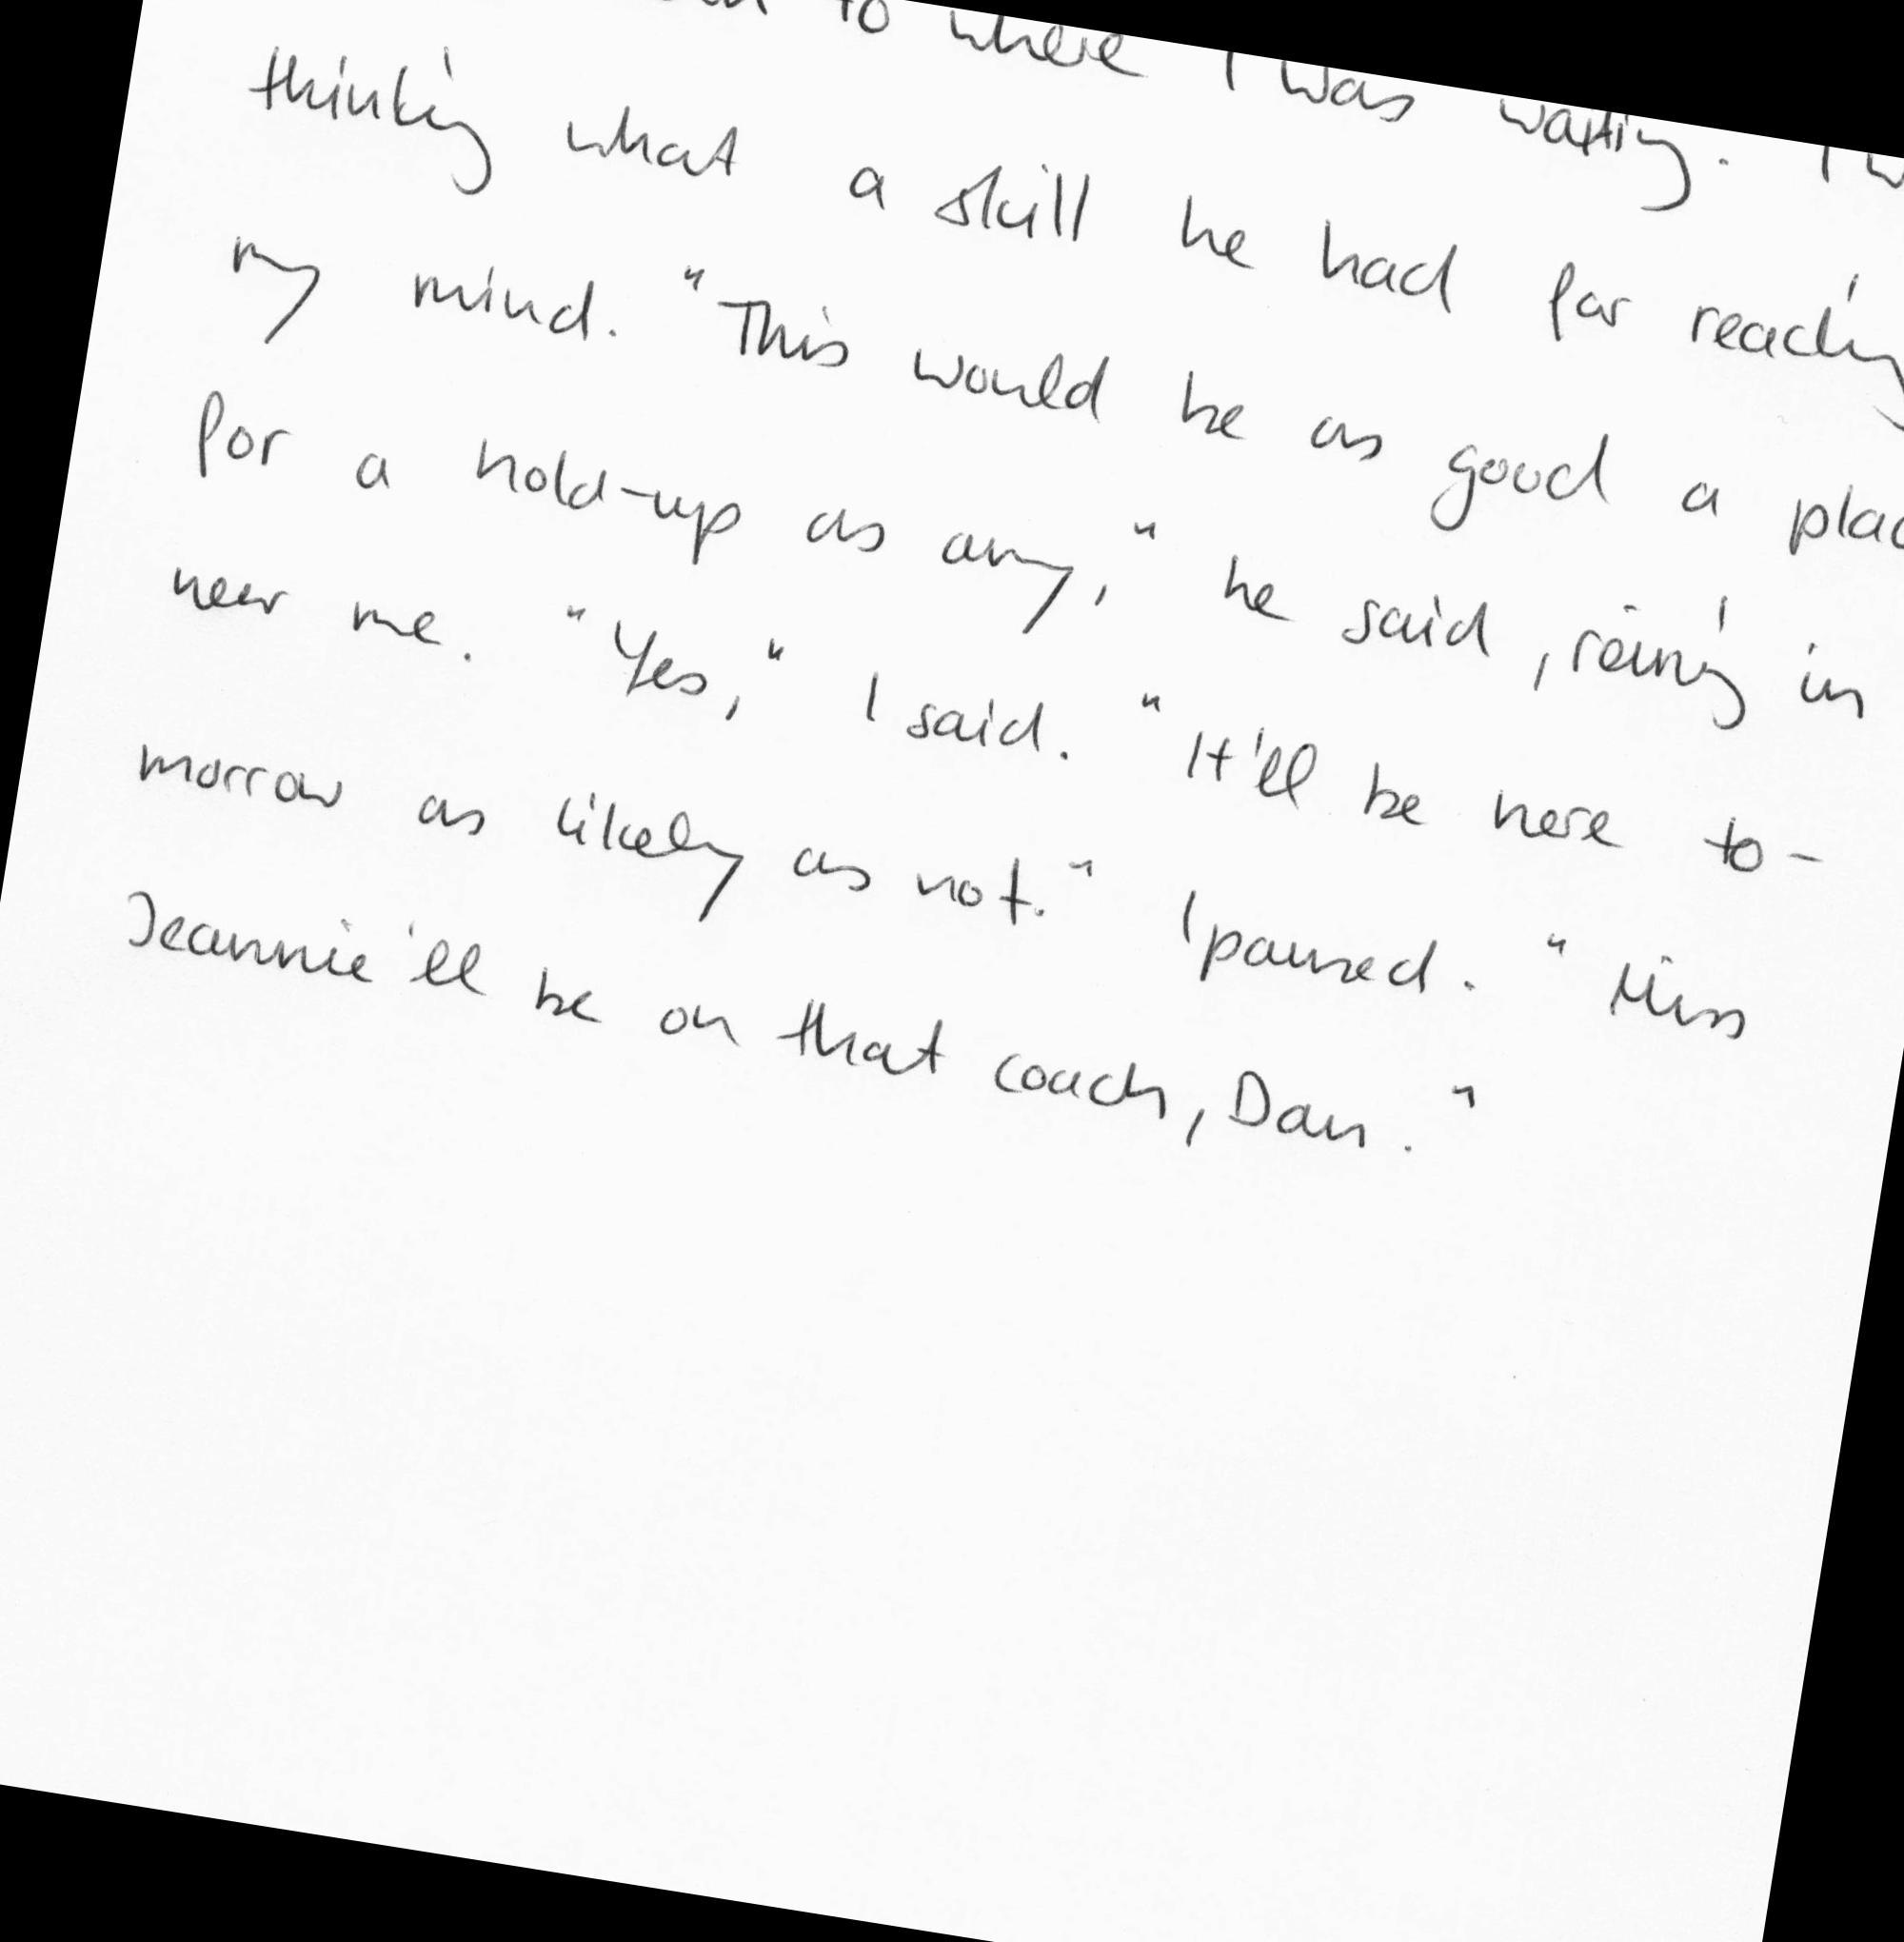 to where I was waiting. I
thinking what a skill he had for reading
my mind. "This would be as good a
for a hold-up as any," he said, reining in
near me. "Yes," I said. "It'll be here to-
morrow as likely as not." I paused. "Miss
Jeannie'll be on that coach, Dan."